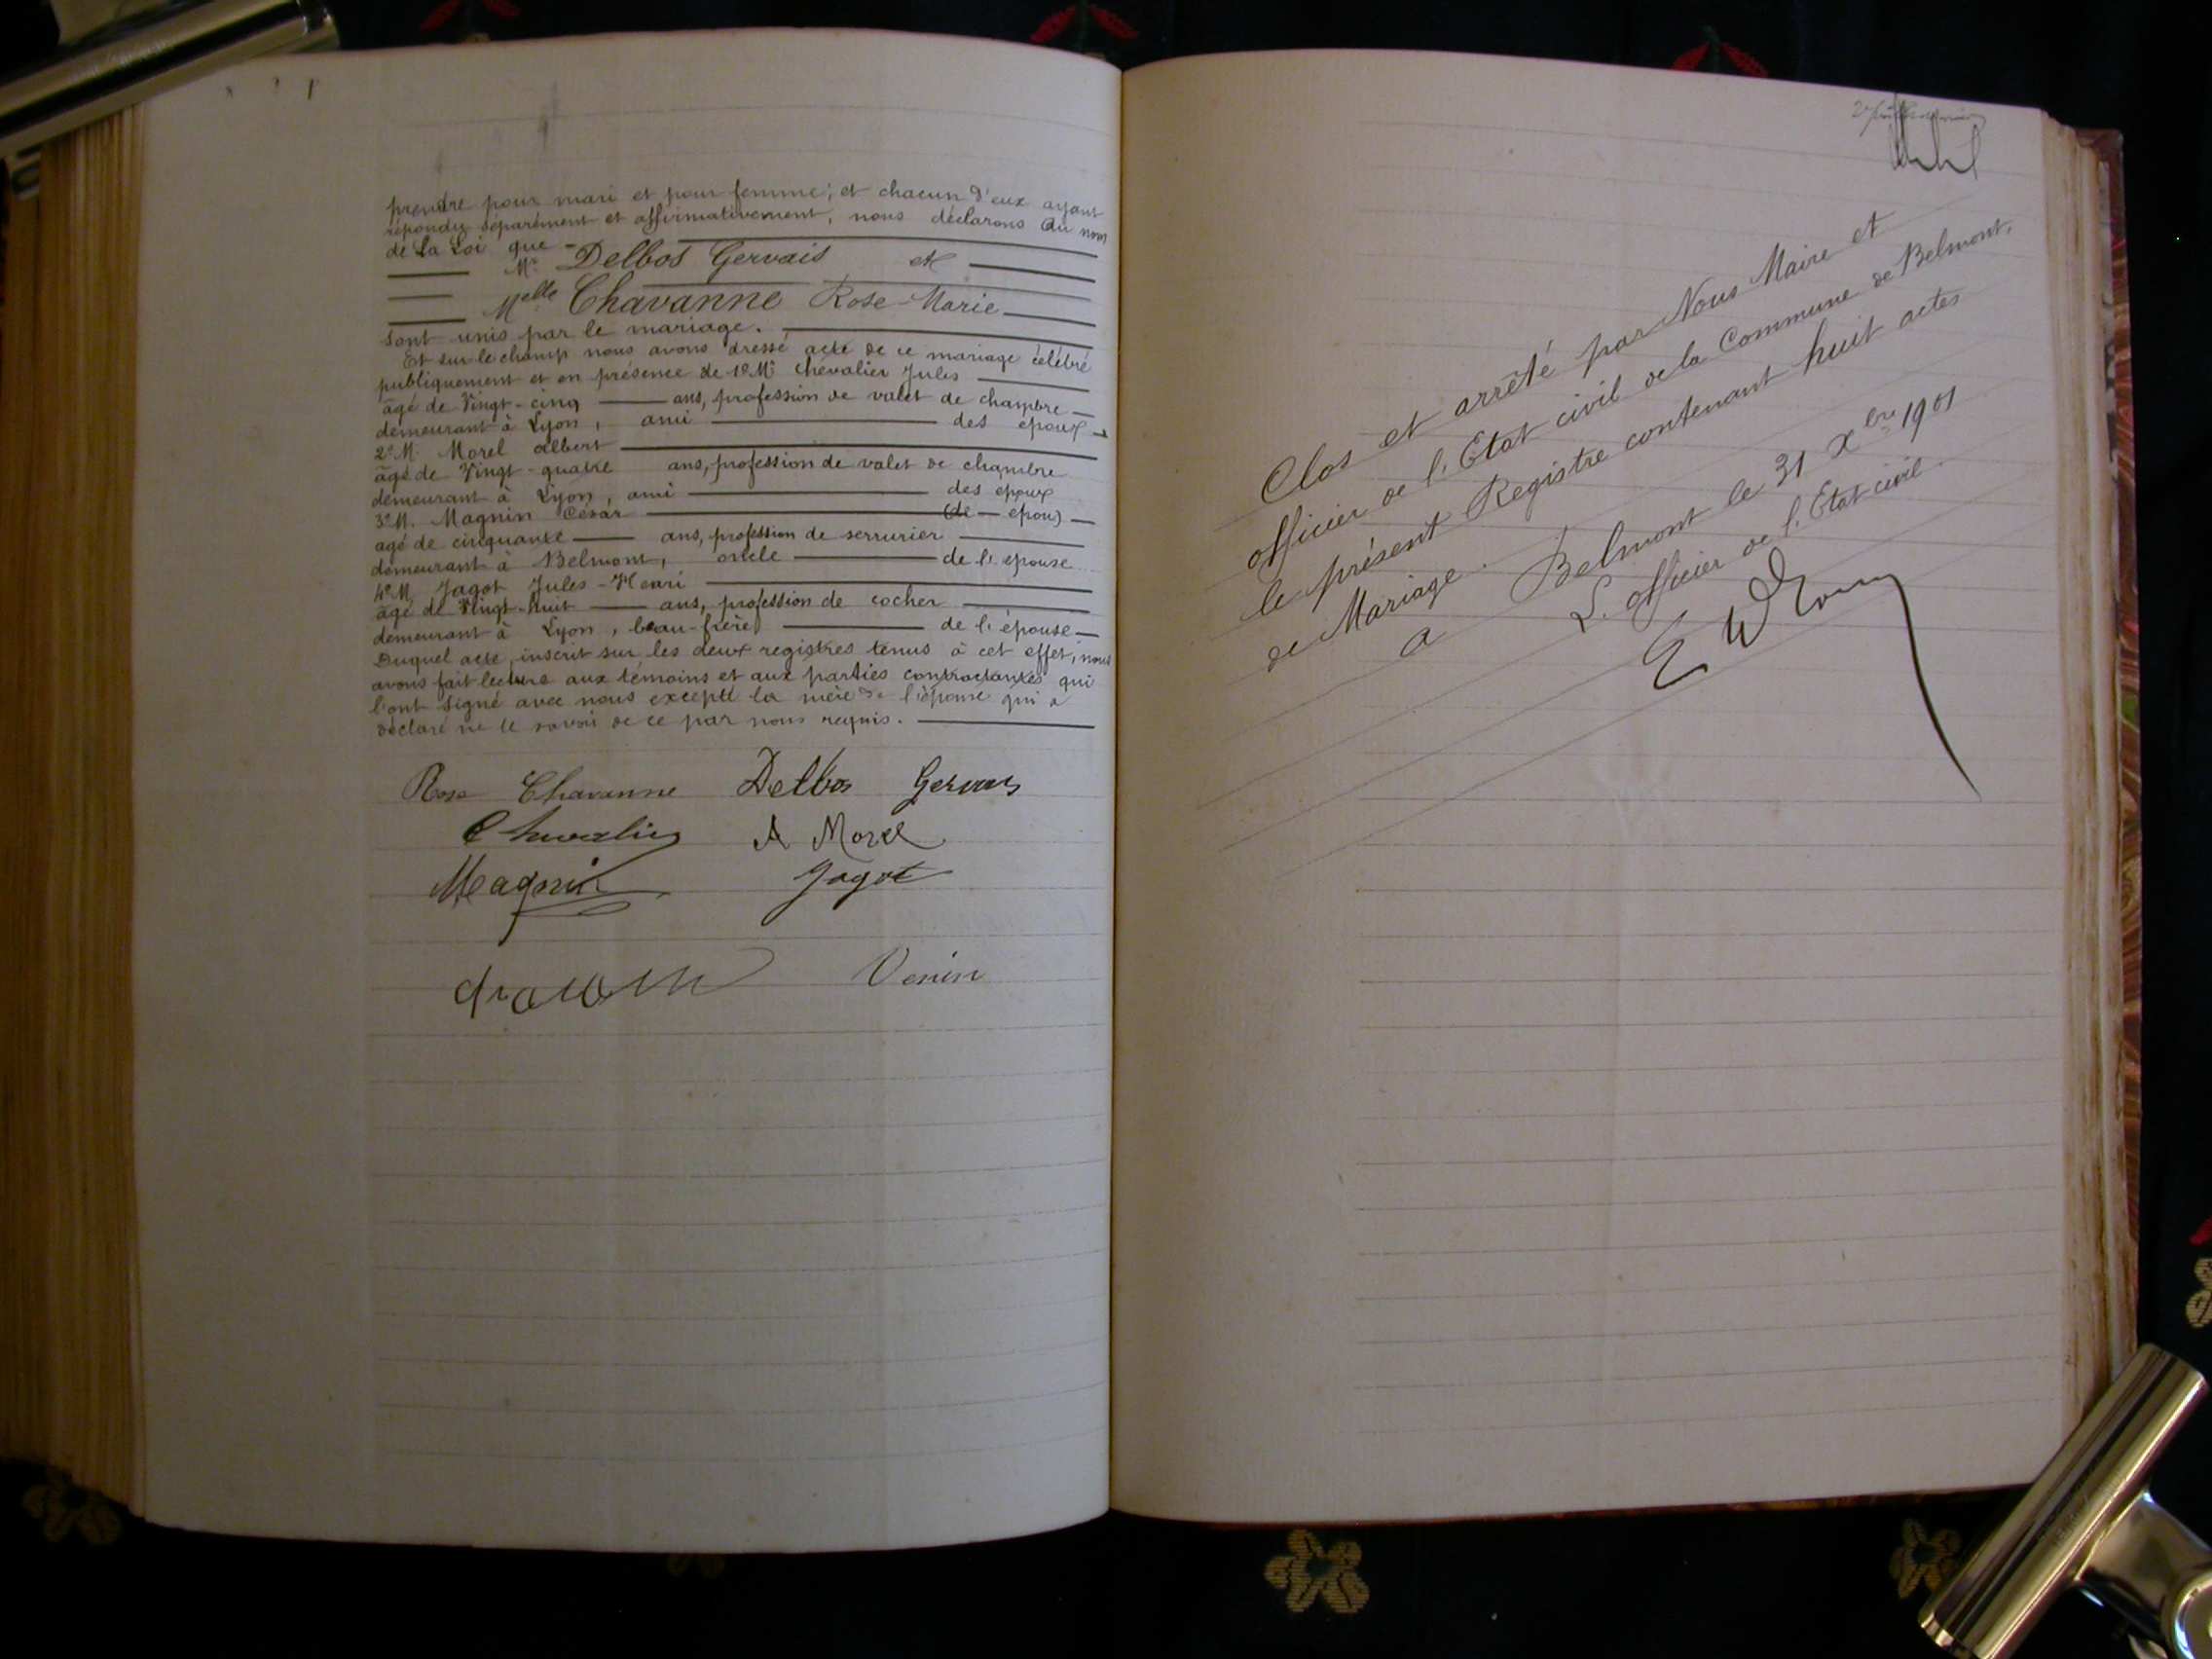 prendre pour mari et pour femme; et chacun d'eux ayant
répondu séparément et affirmativement, nous déclarons au nom
de La Loi que
Mr Delbos Gervais et
Melle Chavanne Rose-Marie
sont unis par le mariage.
Et sur le champ nous avons dressé acte de ce mariage célébré
publiquement et en présence de 1º Mr Chevalier Jules
âgé de Vingt-cinq ans, profession de valet de chambre
demeurant à Lyon, ami des époux
2º M. Morel Albert
âgé de Vingt-quatre ans, profession de valet de chambre
demeurant à Lyon, ami des époux
3º M. Magnin César (de — epou)
agé de cinquante ans, profession de serrurier
demeurant à Belmont, oncle de l'épouse
4º M. Jagot Jules-Henri
âgé de Vingt-huit ans, profession de cocher
demeurant à Lyon, beau-frère de l'épouse
Duquel acte, inscrit sur les deux registres tenus à cet effet, nous
avons fait lecture aux témoins et aux parties contractantes qui
l'ont signé avec nous excepté la mère de l'épouse qui a
déclaré ne le savoir de ce par nous requis.
Rose Chavanne Delbos Gervais
Chevalier A Morel
Magnin Jagot
Venin
Clos et arrêté par Nous Maire et
officier de l'Etat civil de la Commune de Belmont,
le présent Registre contenant huit actes
de Mariage.
A Belmont le 31 Xbre 1901
L'officier de l'Etat civil.